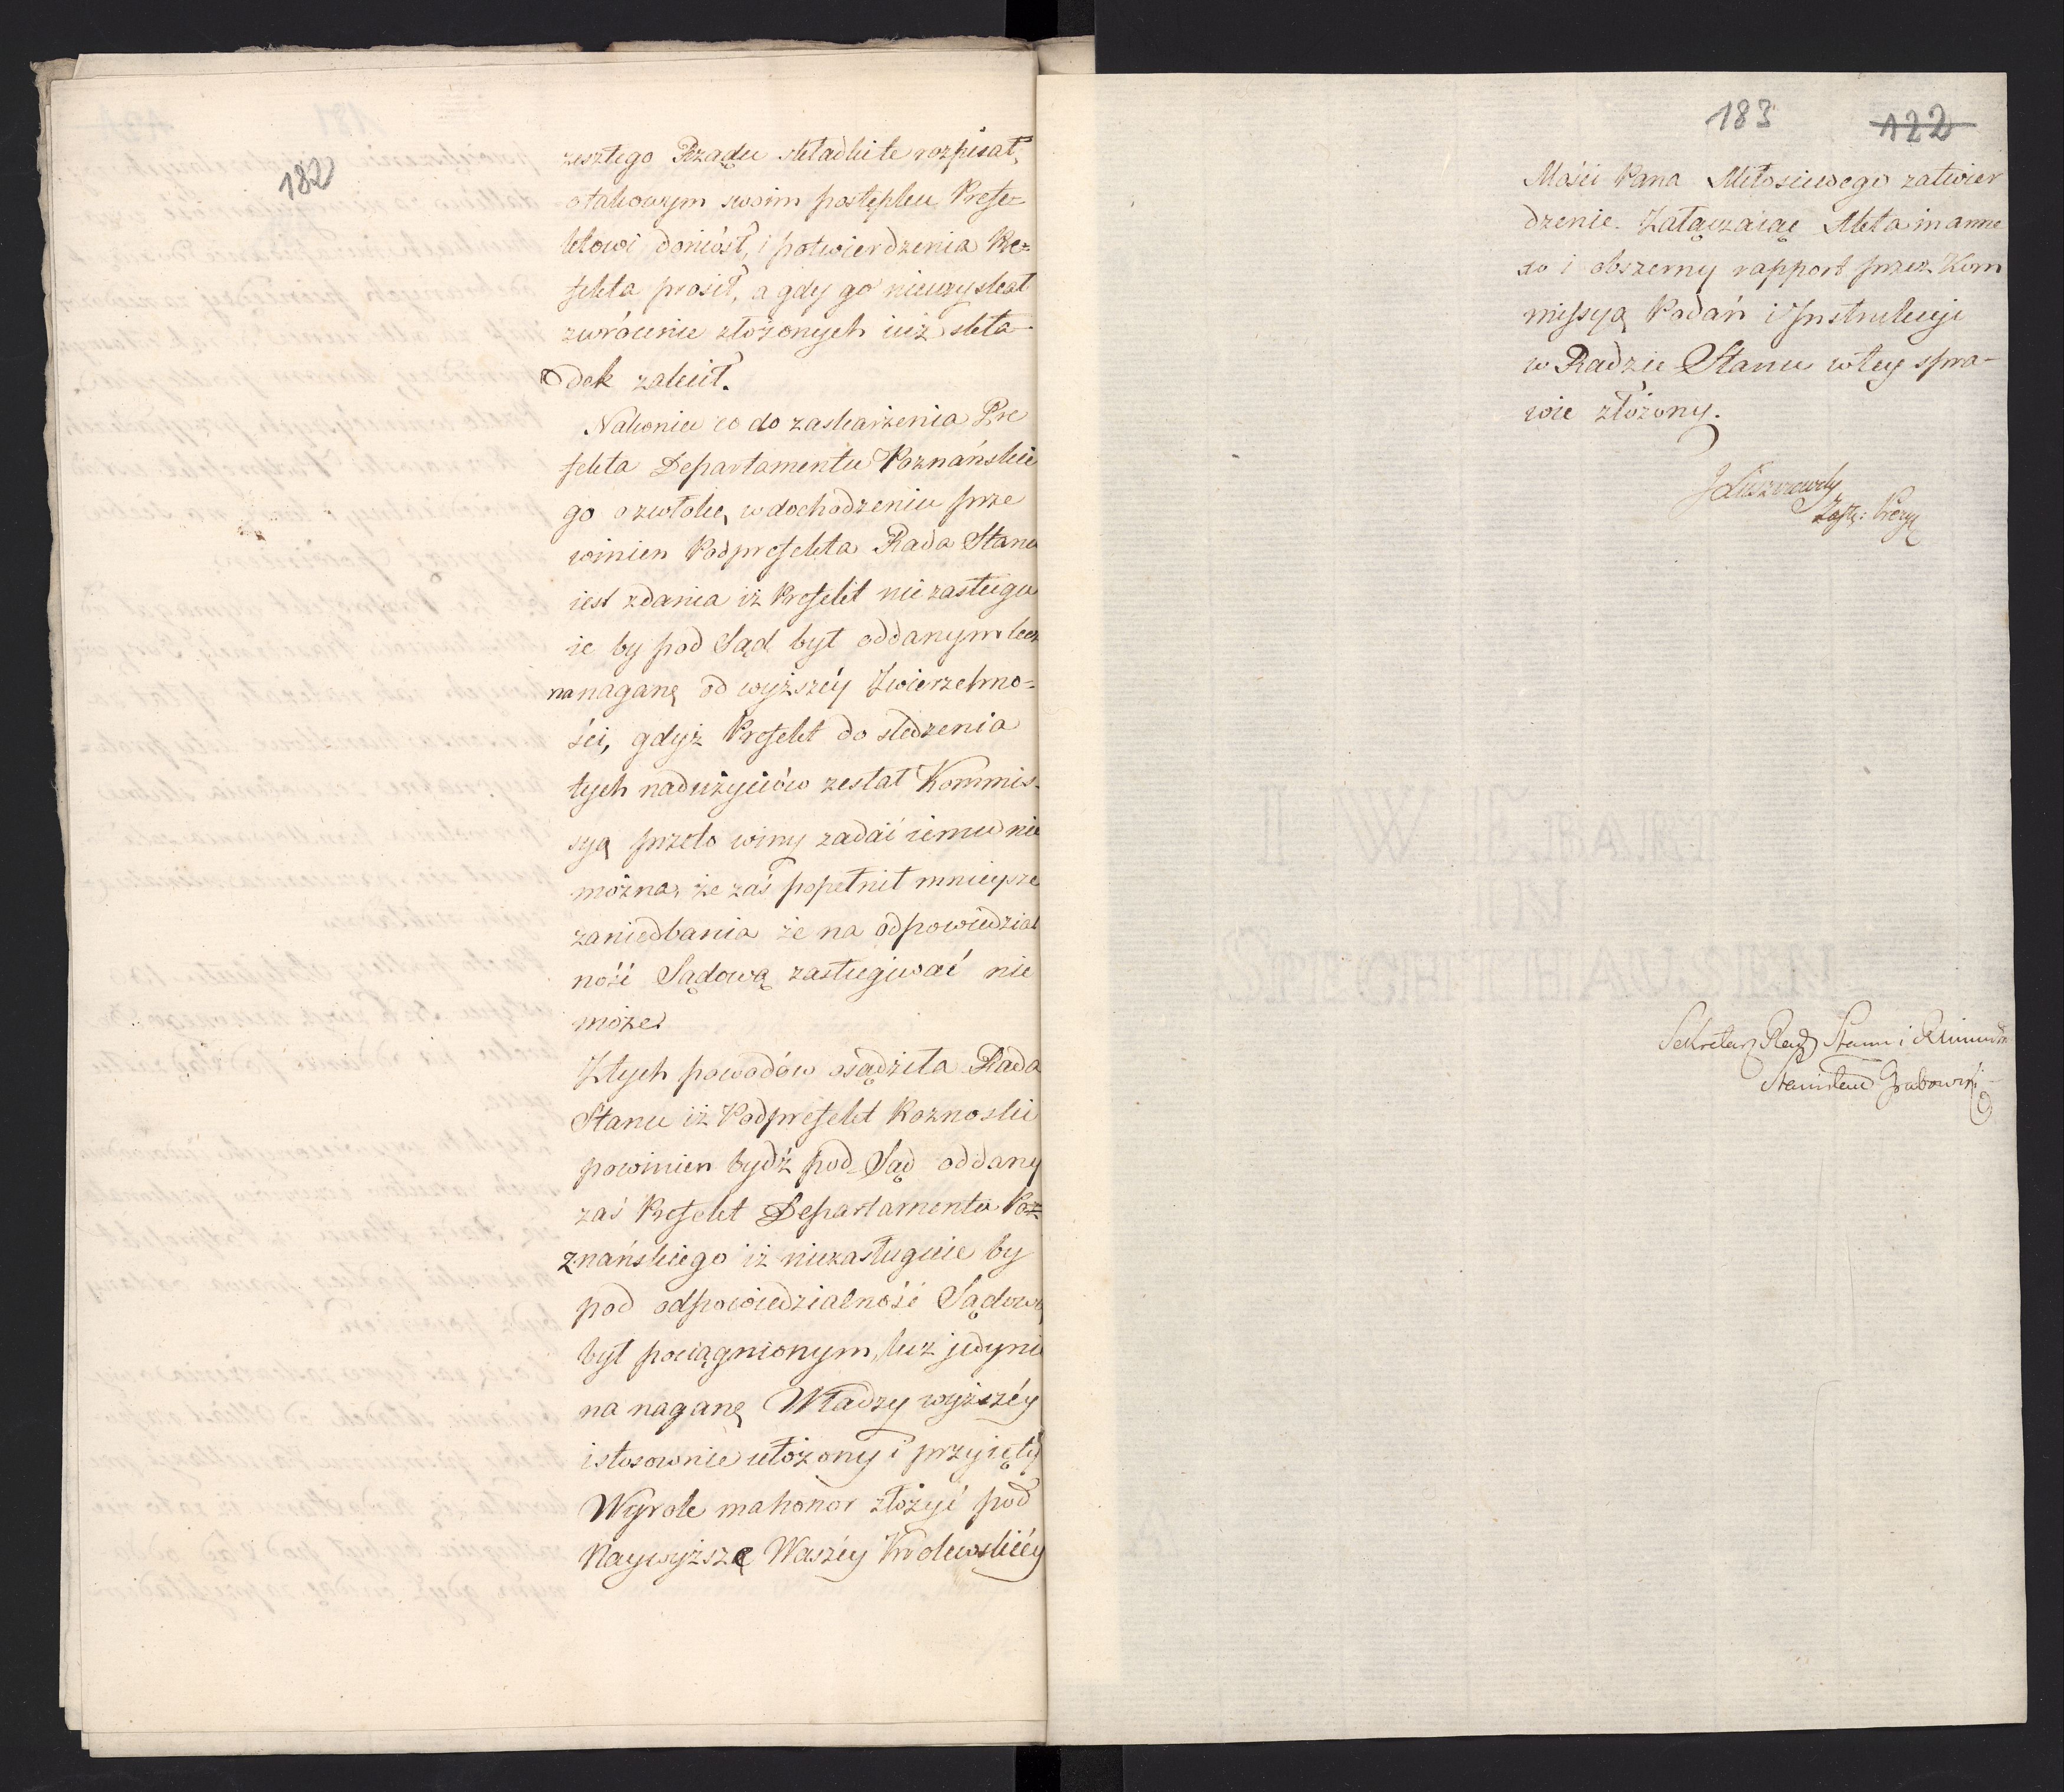 182
zeszłego Rządu składki te rozpisał,
o takowym swoim postępku Prefe=
ktowi doniósł, i potwierdzenia Pre=
fekta prosił, a gdy go nieuzyskał
zwrócenie złożonych iuż skła-
dek zalecił.
Nakoniec co do zaskarżenia Pre
fekta Departamentu Poznańskie
go o zwłokę w dochodzeniu prze
winien Podprefekta Rada Stanu
iest zdania iż Prefekt nie zasługu
ie by pod Sąd był oddanym lecz
na naganę od wyższéy Zwierzchno=
ści, gdyż Prefekt do sledzenia
tych nadużyciów zesłał Kommis-
syą przeto winy zadać iemu nie
można, że zaś popełnił mnieysze
zaniedbania że na odpowiedzial
ność Sądową zasługiwać nie
może.
Z tych powodów osądziła Rada
Stanu iż Podprefekt Poznoski
powinien bydź pod Sąd oddany
zaś Prefekt Departamentu Poz=
znańskiego iż niezasługuie by
pod odpowiedzialność Sądową
był pociągnionym, lecz jedynie
na naganę Władzy wyższéy
i stosownie ułożony i przyięty
Wyrok ma honor złożyć pod
Naywyższe Waszéy Królewskiéy
183 122
Mości Pana Miłościwego zatwier
dzenie. Załączaiąc Akta in anne
xo i obszerny rapport przez Kom
missyą Podań i Instrukcyi
w Radzie Stanu w tey spra-
wie złożony.
J Łuszczewsky
Zastę: Prezy
Sekretarz Rady Stanu i Minims
Stanisław Grabowski